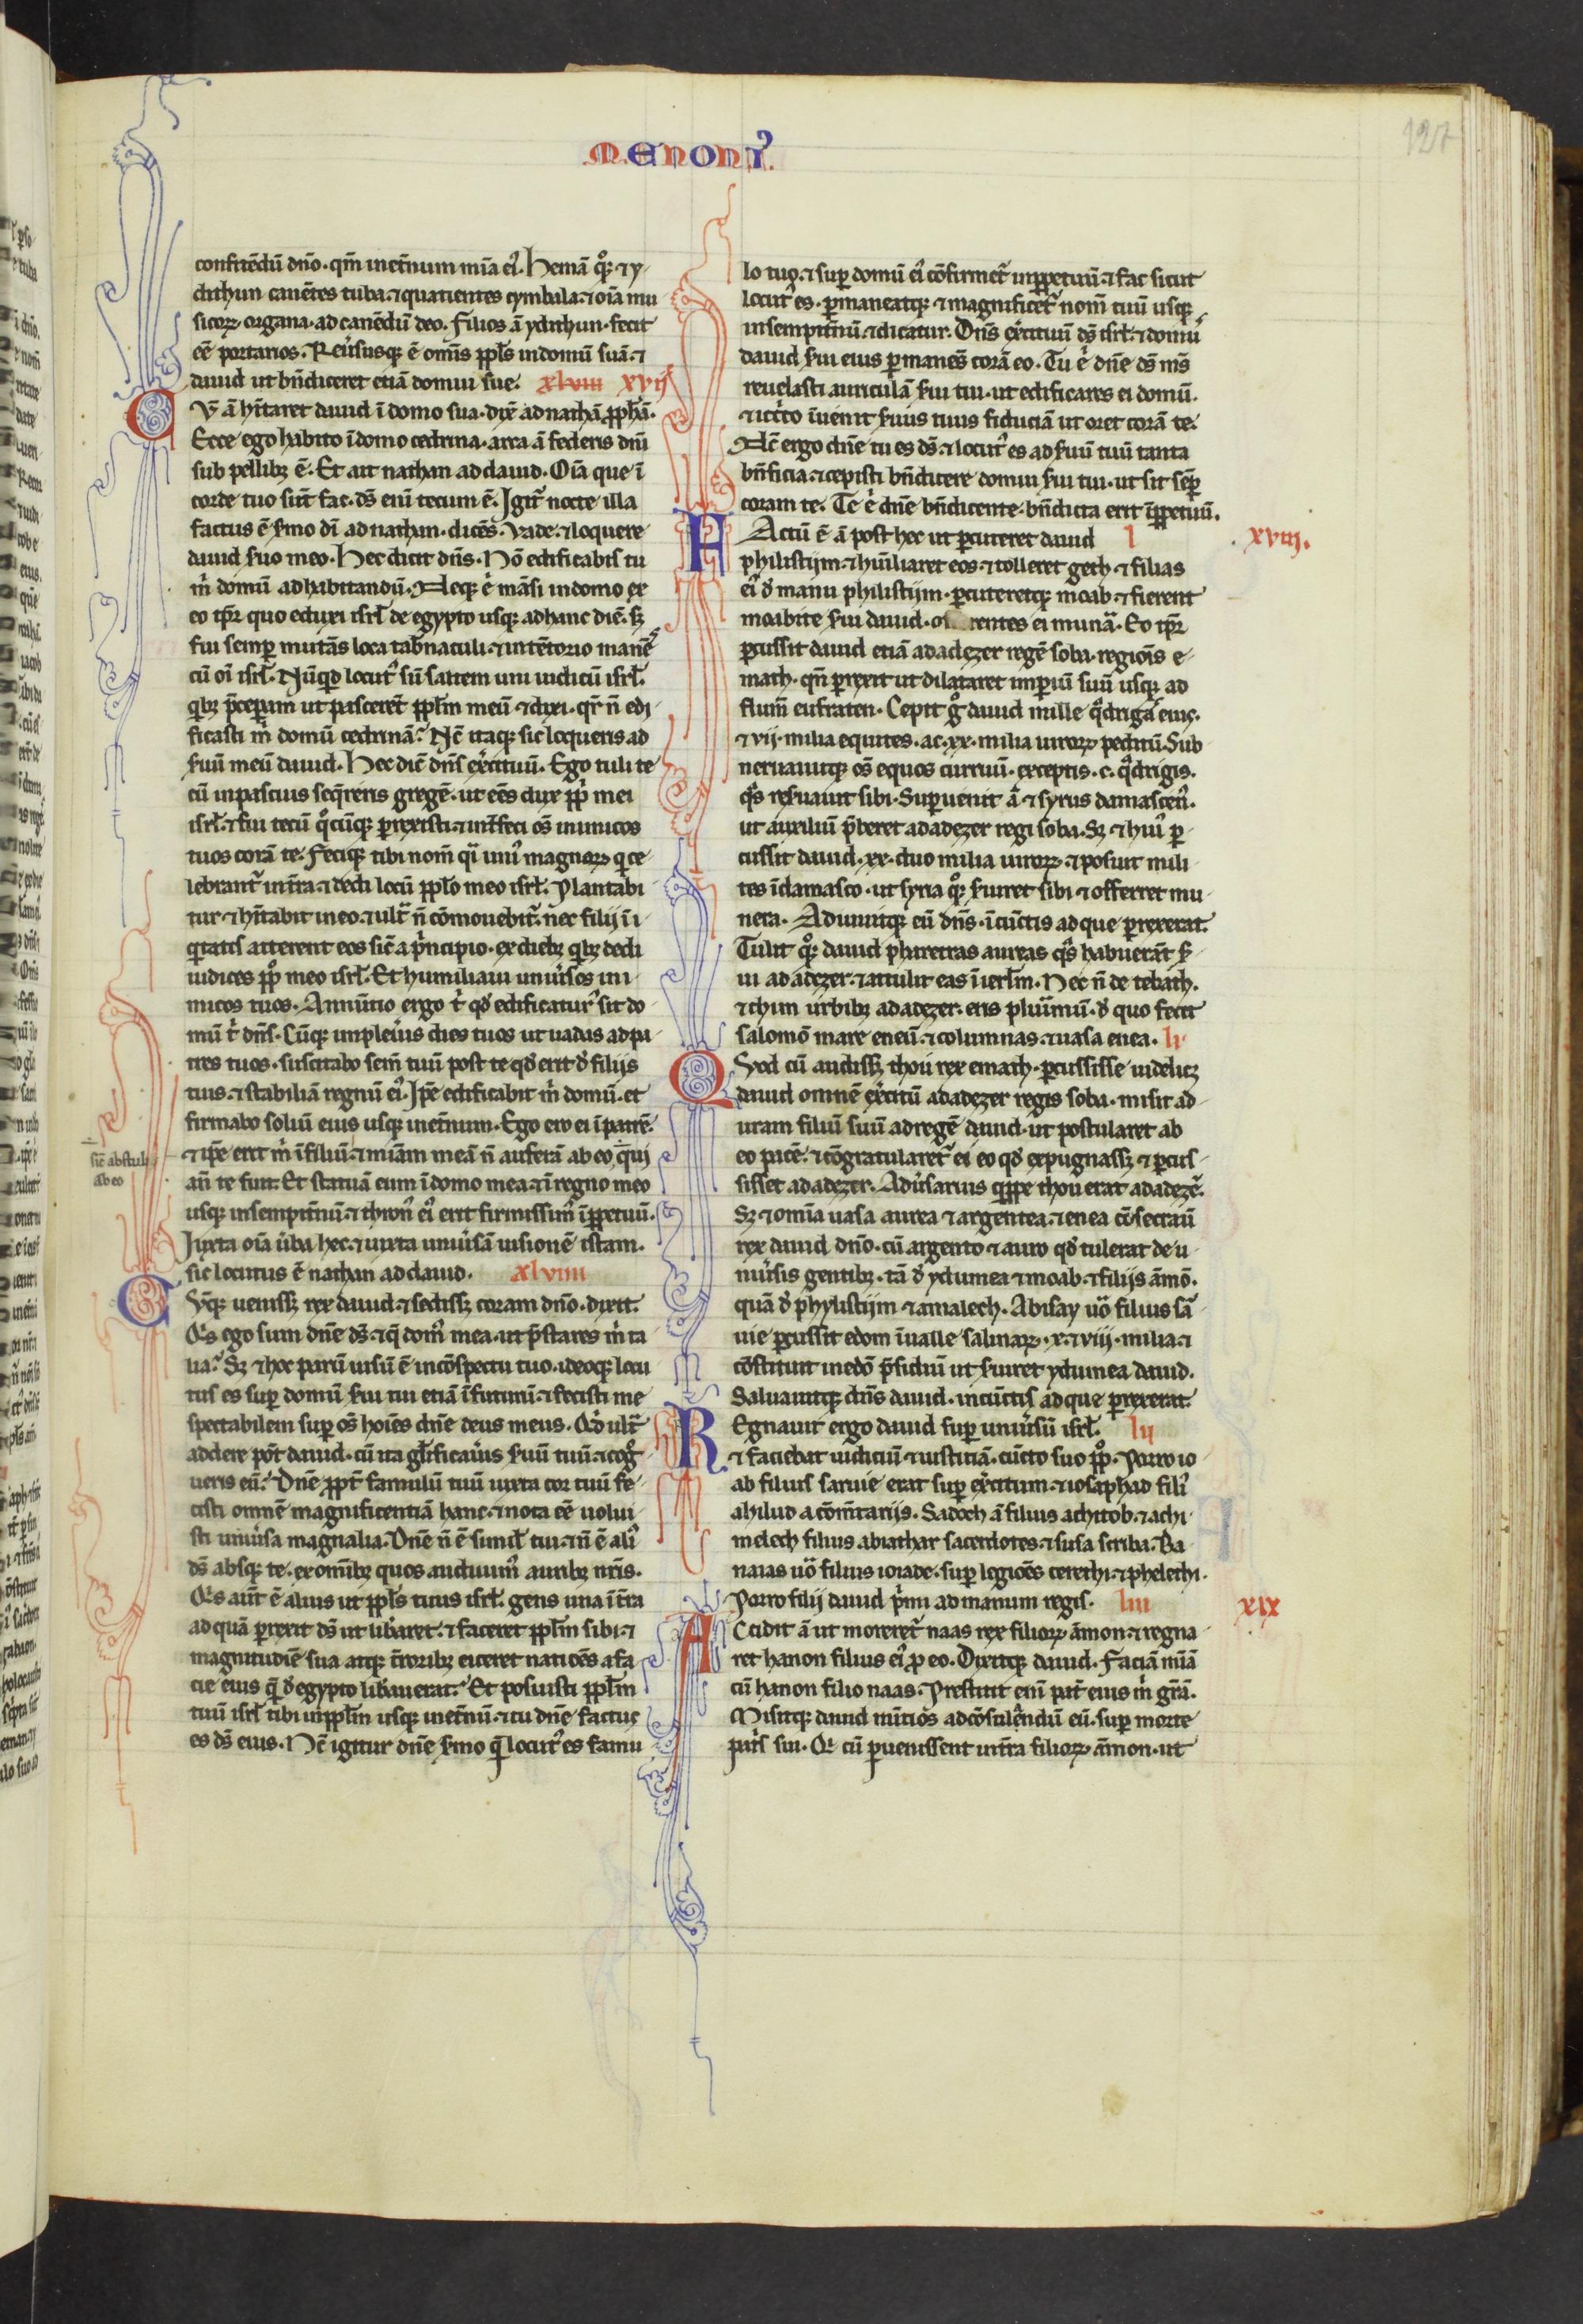 MENONI᾽.
127
confitēdū dn̄o. qm̄ inet̄num mīa ei᷒. Hemā q᷒ꝫ ⁊ y
dithun canētes tuba. ⁊ quatientes cymbala. ⁊ oīa mu
sicoꝝ organa. ad canēdū deo. filios ā ydithun. fecit
eē portarios. Reūsusqꝫ ē om̄is ppl̄s indomū suā. ⁊
dauid ut bn̄diceret etiā domui sue. xlviii xvij
Cv̄ ā hītaret dauid ī domo sua. dix̄ ad nathā ꝓph̄ā.
Ecce ego habito ī domo cedrina. arca ā federis dn̄i
sub pellibꝫ ē. Et ait nathan ad dauid. Oīa que ī
corde tuo sūt fac. ds̄ eni tecum ē. Igit᷑ nocte illa
factus ē s̄mo dī ad nathan. dicēs. Vade. ⁊ loquere
dauid s̄uo meo. Hec dicit dn̄s. Nō edificabis tu
m̓ domū ad habitandū. Neqꝫ e̓ māsi indomo ex
eo tp̄r quo eduxi isrl̄ de egypto usqꝫ ad hanc diē. sꝫ
fui semꝑ mutās loca tab̄naculi. ⁊ intētorio manēs
cū oī isrl̄. Nūqd locut᷒ sū saltem uni iudicū isrl̄.
qibꝫ p̄cepam ut pasceret ppl̄m meū ⁊ dixi. qr̄ n̄ edi
ficasti m̓ domū cedrinā? Nc̄ itaqꝫ sic loqueris ad
s̄uū meū dauid. Hec dic̄ dn̄s ex̓cituū. Ego tuli te
cū inpascuis seq̄reris gregē. ut eēs dux pp̄ mei
isrl̄. ⁊ fui tecū q̊cūqꝫ ꝑrexisti. ⁊ int̄feci os̄ inimicos
tuos corā te. feciqꝫ tibi nom̄ qi uni᷒ magnoꝝ q ce
lebrant᷑ int̄ra. ⁊ dedi locū ppl̄o meo isrl̄. Plantabi
tur ⁊ hītabit ineo. ⁊ ult̄ n̄ cōmouebit᷑. nec filij ini
qitatis atterent eos sic̄ a p̓ncipio. ex diebꝫ qibꝫ dedi
iudices pp̄o meo isrl̄. Et humiliaui uniūsos ini
micos tuos. Annūtio ergo t̓ qd̓ edificatur᷒ sit do
mū t̓ dn̄s. Cūqꝫ impleūis dies tuos ut uadas ad pa
tres tuos. suscitabo sem̄ tuū post te qd̓ erit d̓ filijs
tuis. ⁊ stabiliā regnū ei᷒. Ip̄e edificabit m̓ domū. et
firmabo soliū eius usqꝫ inet̄num. Ego ero ei ī patrē.
⁊ ip̄e erit m̓ ī filiū. ⁊ miā̄m meā n̄ auferā ab eo q̄ui
an̄ te fuit. Et statuā eum ī domo mea. ⁊ ī regno meo
usqꝫ insempit̄nū. ⁊ thron᷒ ei᷒ erit firmissim᷒ īꝑpetuū.
Iuxta oīa ūba hec. ⁊ iuxta uniūsā uisionē istam.
sic locutus ē nathan ad dauid. xlviiii
Cvqꝫ uenissꝫ rex dauid ⁊ sedissꝫ coram dn̄o. dixit.
Qis ego sum dn̄e ds̄. ⁊ q̄ dom᷒ mea. ut p̄stares m̓ ta
lia? Sꝫ ⁊ hoc parū uisū ē incōspectu tuo. ideoqꝫ locu
tus es suꝑ domū s̄ui tui etiā ī futurū. ⁊ fecisti me
spectabilem suꝑ os̄ hoīes dn̄e deus meus. Qd̓ ult̄
addere pot̄ dauid. cū ita gl̄ificaūis s̄uū tuū. ⁊ cog̊
ueris eū? Dn̄e ꝓpt̄ famulū tuū iuxta cor tuū fe
cisti omnē magnificentiā hanc. ⁊ nota eē uolui
sti uniūsa magnalia. Dn̄e n̄ ē simil̄ tui. ⁊ n̄ ē ali᷒
ds̄ absqꝫ te. ex om̄ibꝫ quos audiuim᷒ auribꝫ nr̄is.
Qis aut̄ ē alius ut ppl̄s tuus isrl̄. gens una ī t̄ra
ad quā ꝑrexit ds̄ ut libaret. ⁊ faceret ppl̄m sibi. ⁊
magnitudīe sua atqꝫ t̄roribꝫ eiceret natiōes a fa
cie eius q̄ d̓ egypto libauerat? Et posuisti ppl̄m
tuū isrl̄ tibi inppl̄m usqꝫ inet̄nū. ⁊ tu dn̄e factus
es ds̄ eius. Nc̄ igitur dn̄e s̄mo q̄ locut᷒ es famu
sic̄ abstuli
ab eo
lo tuo. ⁊ suꝑ domū ei᷒ cōfirmet᷑ inꝑpetuū. ⁊ fac sicut
locut᷒ es. ꝑmaneatqꝫ ⁊ magnificet᷑ nom̄ tuū usqꝫ
insempit̄nū. ⁊ dicatur. Dn̄s ex̓cituū ds̄ isrl̄. ⁊ domus
dauid s̄ui eius ꝑmanēs corā eo. Tu e̓ dn̄e ds̄ ms̄
reuelasti auriculā s̄ui tui. ut edificares ei domū.
⁊ icc̓o īuenit s̄uus tuus fiduciā ut oret corā te.
Nc̄ ergo dn̄e tu es ds̄. ⁊ locut᷒ es ad s̄uū tuū tanta
bn̄ficia. ⁊ cepisti bn̄dicere domui s̄ui tui. ut sit semꝑ
coram te. Te e̓ dn̄e bn̄dicente. bn̄dicta erit īꝑpetuū.
FActū ē ā post hec ut ꝑcuteret dauid l xviij.
philistijm. ⁊ hūiliaret eos. ⁊ tolleret geth ⁊ filias
ei᷒ d̓ manu philistijm. ꝑcuteretqꝫ moab. ⁊ fierent
moabite s̄ui dauid. of rentes ei munā. Eo tp̄r
ꝑcussit dauid etiā adadezer regē soba. regiōis e
math. qn̄ ꝑrexit ut dilataret imꝑiū suū usqꝫ ad
flum̄ eufraten. Cepit g̊ dauid mille q̄drigas eius.
⁊ vij. milia equites. ac. xx. milia uiroꝝ peditū. Sub
neruauitqꝫ os̄ equos curruū. exceptis. c. q̄drigis.
q̄s resuauit sibi. Suꝑuenit ā ⁊ syrus damascen᷒.
ut auxiliū p̄beret adadezer regi soba. Sꝫ ⁊ hui᷒ ꝑ
cussit dauid. xx. duo milia uiroꝝ. ⁊ posuit mili
tes ī damasco. ut syria q᷒ꝫ s̄uiret sibi ⁊ offerret mu
nera. Adiuuitqꝫ eū dn̄s. ī cūctis ad que ꝑrexerat.
Tulit q᷒ꝫ dauid pharetras aureas q̄s habuerāt s̄
ui adadezer. ⁊ attulit eas ī ierl̄m. Nec n̄ de tebath.
⁊ chun urbibꝫ adadezer. eris plurimū. d̓ quo fecit
salomō mare eneū. ⁊ columnas. ⁊ uasa enea. li
QVod cū audissꝫ thou rex emath. ꝑcussisse uidelicꝫ
dauid omnē ex̓citū adadezer regis soba. misit ad
uram filiū suū ad regē dauid. ut postularet ab
eo pacē. ⁊ cōgratularet᷑ ei eo qd̓ expugnassꝫ ⁊ ꝑcus
sisset adadezer. Adūsarius q̄ppe thou erat adadezē.
Sꝫ ⁊ omīa uasa aurea ⁊ argentea. ⁊ enea cōsecrauit
rex dauid dn̄o. cū argento ⁊ auro qd̓ tulerat de u
niūsis gentibꝫ. tā d̓ ydumea ⁊ moab. ⁊ filijs āmō.
quā d̓ phylistijm ⁊ amalech. Abisay uō filius sar
uie ꝑcussit edom ī ualle salinaꝝ. x. ⁊ viii. milia. ⁊
cōstituit inedō p̄sidiū ut s̄uiret ydumea dauid.
Saluauitqꝫ dn̄s dauid. incūctis ad que ꝑrexerat.
REgnauit ergo dauid suꝑ uniūsū isrl̄. lij
⁊ faciebat iudiciū ⁊ iustitiā. cūcto suo pp̄o. Porro io
ab filius saruie erat suꝑ ex̓citum. ⁊ iosaphad fili᷒
ahilud a cōm̄tarijs. Sadoch ā filius achitob. ⁊ achi
melech filius abiathar sacerdotes. ⁊ susa scriba. Ba
naias uō filius ioiade. suꝑ legiōes cerethi. ⁊ phelethi.
Porro filij dauid p̓mi ad manum regis. liii xix
ACcidit ā ut moreret᷑ naas rex filioꝝ āmon. ⁊ regna
ret hanon filius ei᷒ ꝓ eo. Dixitqꝫ dauid. Faciā mīā
cū hanon filio naas. Prestitit eni pat̄ eius m̓ gr̄ā.
Misitqꝫ dauid nūtios ad cōsulēndū eū. suꝑ morte
patris sui. Qi cū ꝑuenissent int̄ra filioꝝ āmon. ut